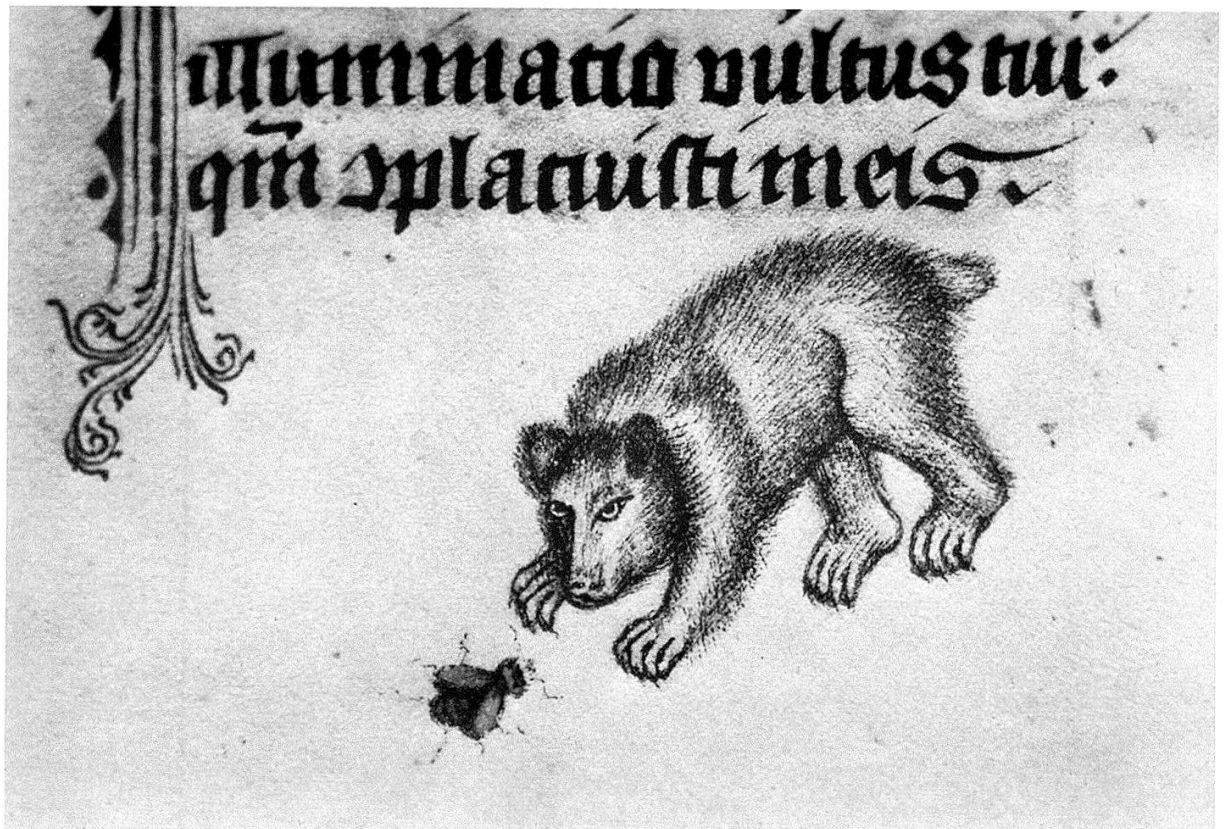 illuminacio vultus tui:
qm̄ ꝯplacuisti in eis.